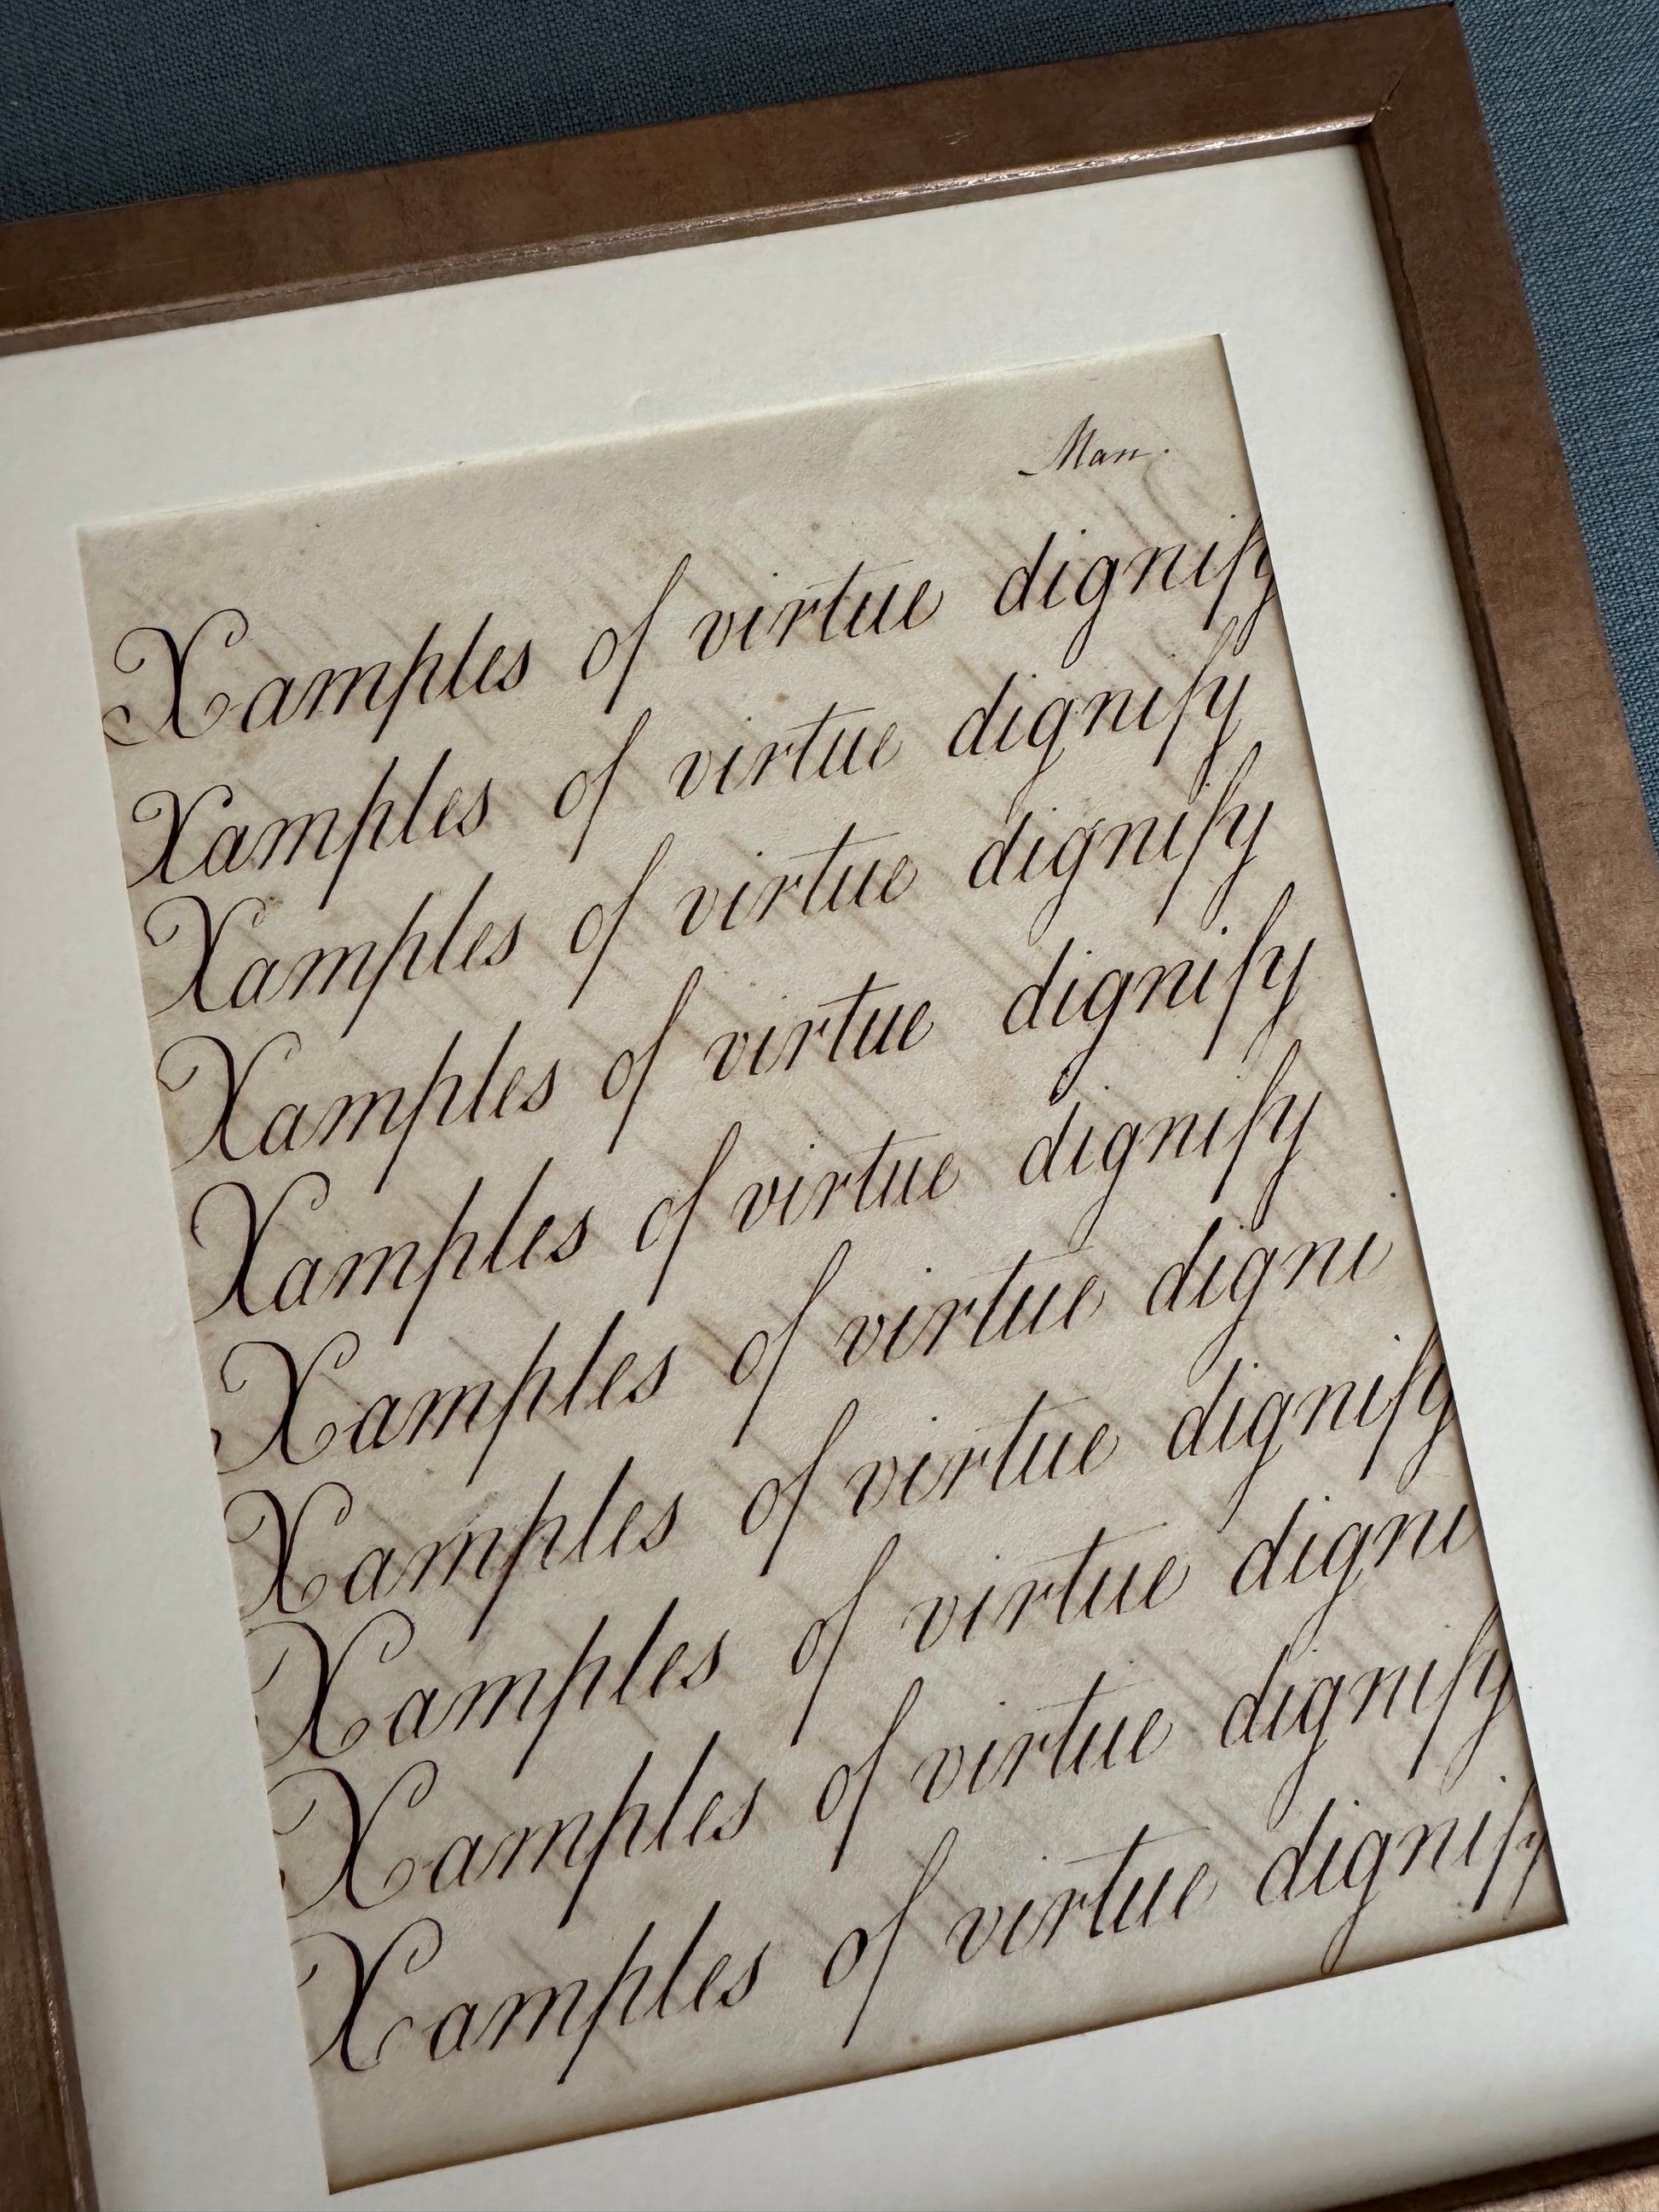 Man.
Xamples of virtue dignify
Xamples of virtue dignify
Xamples of virtue dignify
Xamples of virtue dignify
Xamples of virtue dignify
Xamples of virtue digni
Xamples of virtue dignify
Xamples of virtue digni
Xamples of virtue dignify
Xamples of virtue dignify